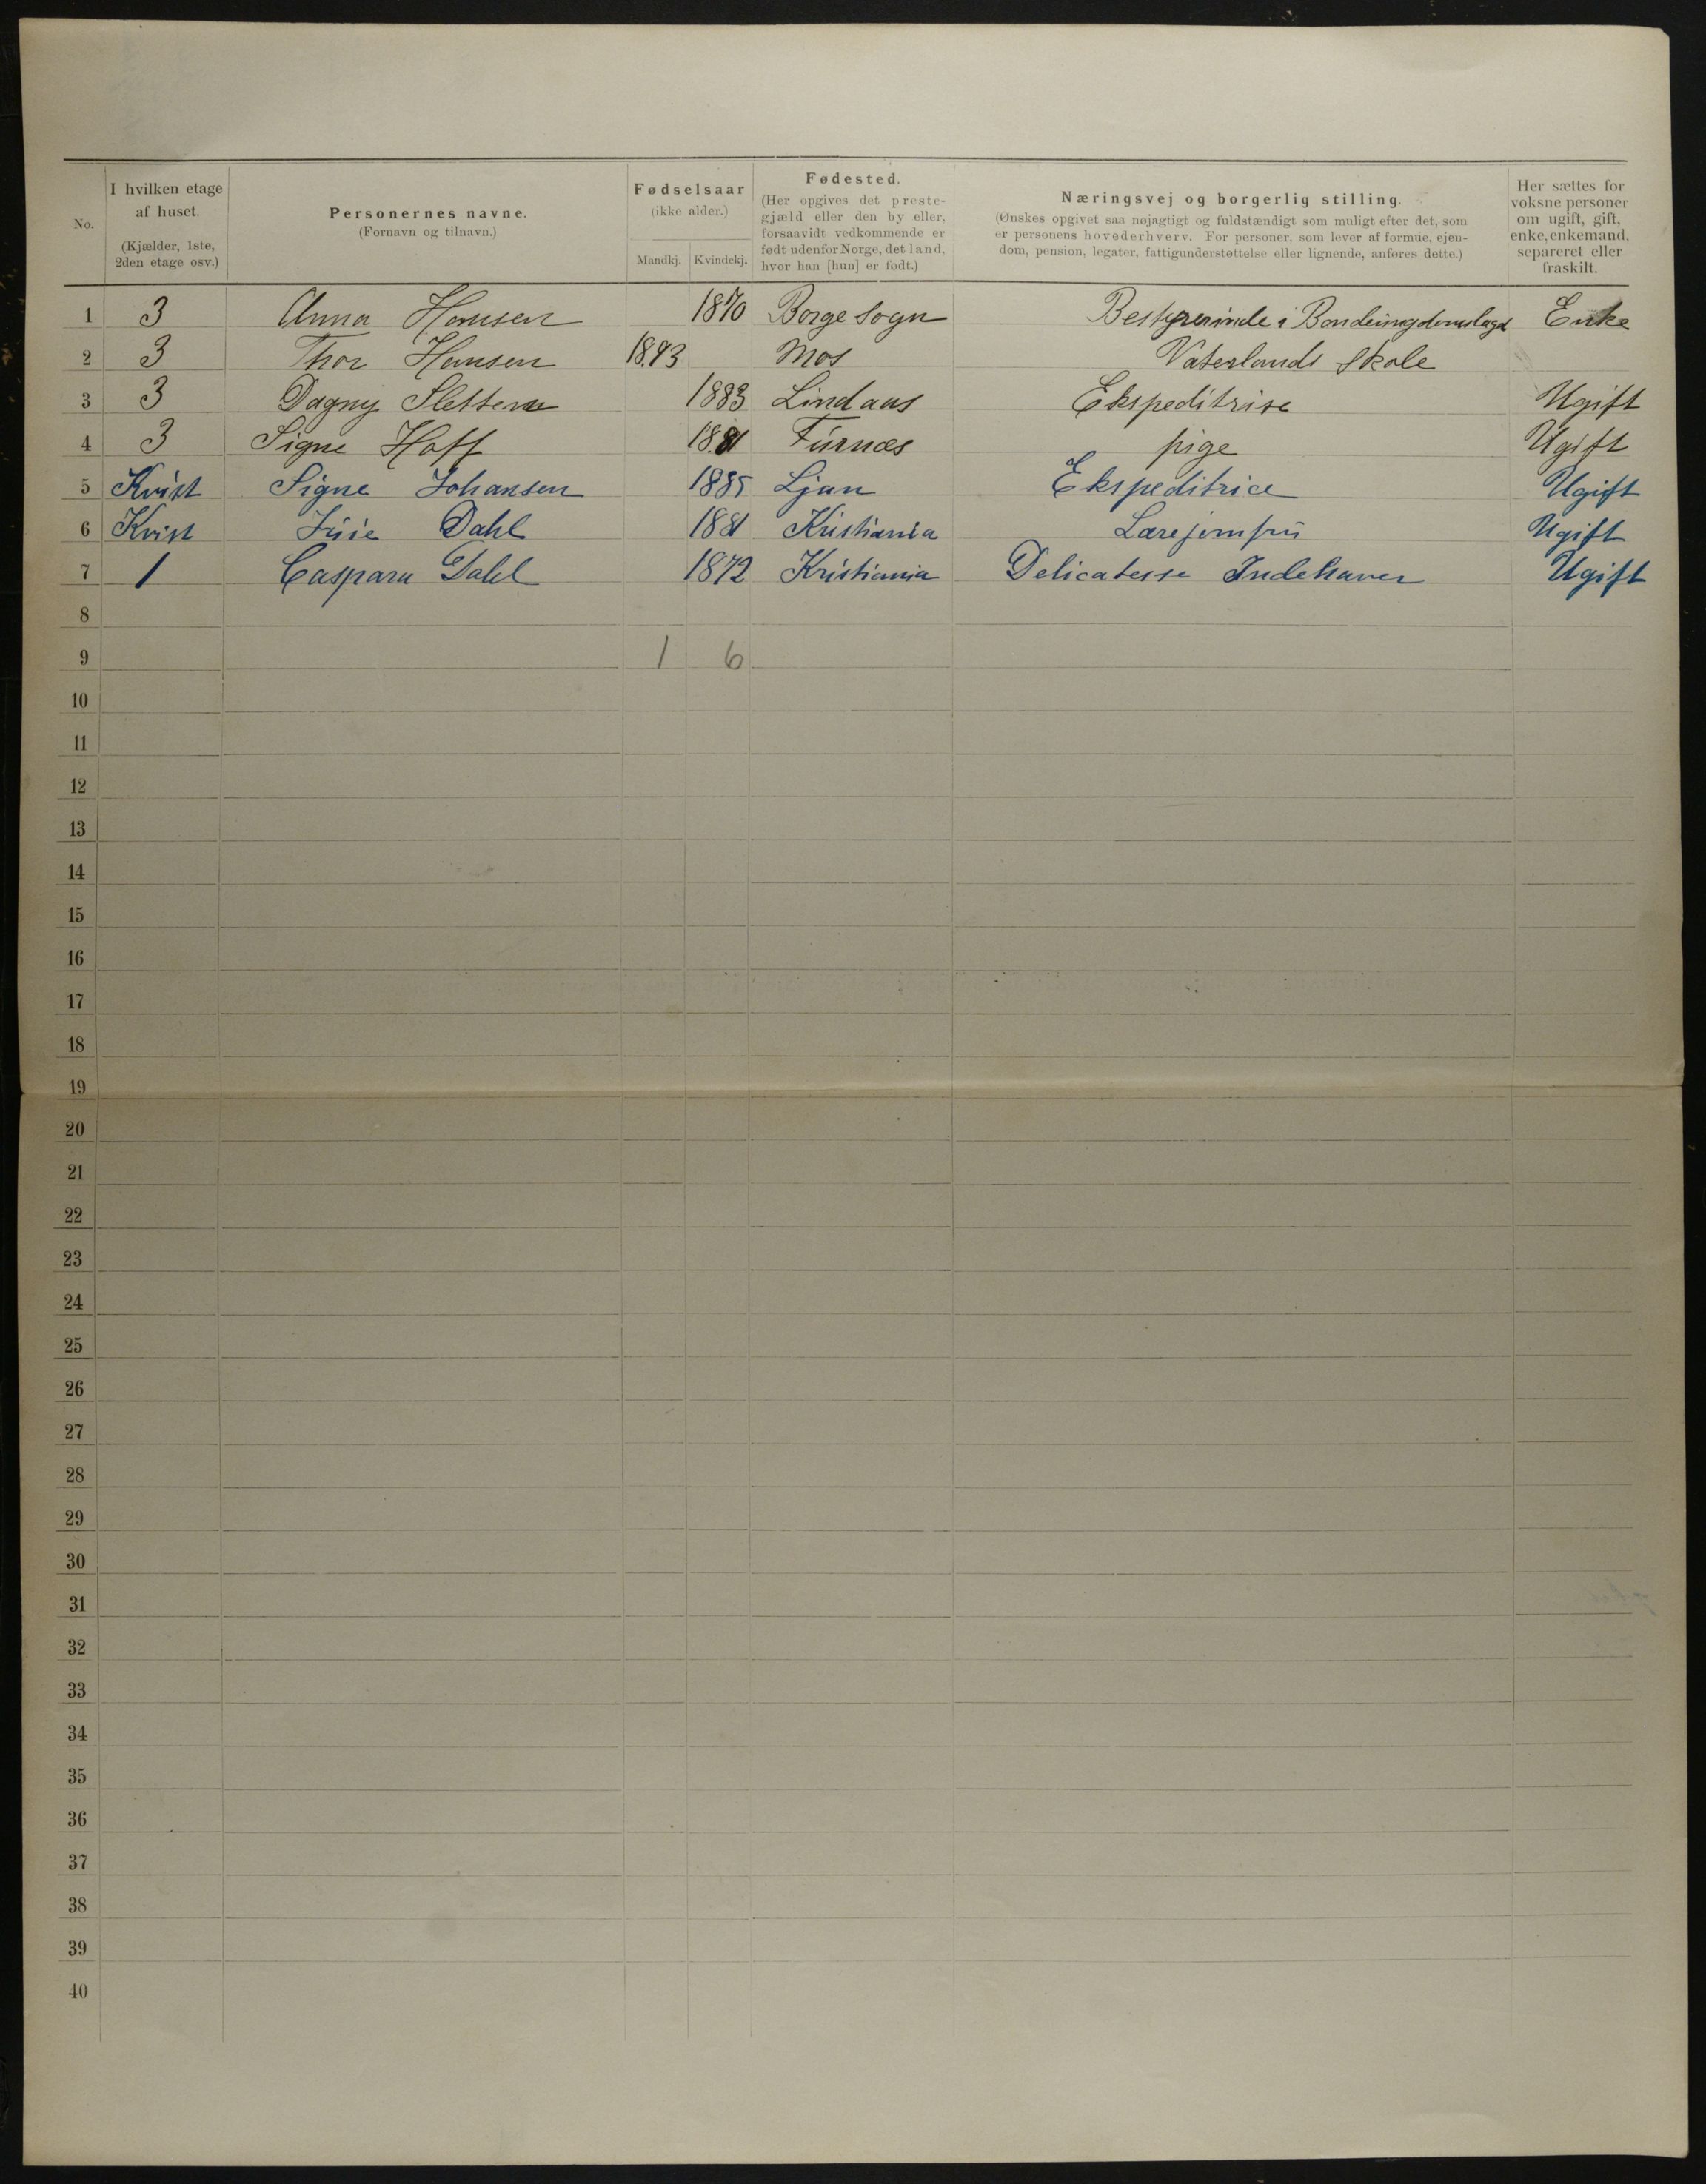 No.
I hvilken etage af huset. (Kjælder, 1ste, 2den etage osv.)
Personernes navne. (Fornavn og tilnavn.)
Fødselsaar (ikke alder.)
Mandkj. Kvindekj.
Fødested. (Her opgives det prestegjæld eller den by eller, forsaavidt vedkommende er født udenfor Norge, det land, hvor han [hun] er født.)
Næringsvej og borgerlig stilling. (Ønskes opgivet saa nøjagtigt og fuldstændigt som muligt efter det, som er personens hovederhverv. For personer, som lever af formue, ejendom, pension, legater, fattigunderstøttelse eller lignende, anføres dette.)
Her sættes for voksne personer om ugift, gift, enke, enkemand, separeret eller fraskilt.
1 3 Anna Hansen 1870 Borge Sogn Bestyrerinde i Enke
2 3 Thor Hansen 1893 Mos Vaterlands Skole
3 3 Dagny 1883 Lindaas Ekspeditrise Ugift
4 3 Signe Hoff 1881 Furnæs pige Ugift
5 Kvist Signe Johansen 1885 Ljan Ekspeditrice Ugift
6 Kvist Dahl 1881 Kristiania Lærejomfru Ugift
7 1 Caspara Dahl 1872 Kristiania Delicatesse Indehaver Ugift
8
9 1 6
10
11
12
13
14
15
16
17
18
19
20
21
22
23
24
25
26
27
28
29
30
31
32
33
34
35
36
37
38
39
40